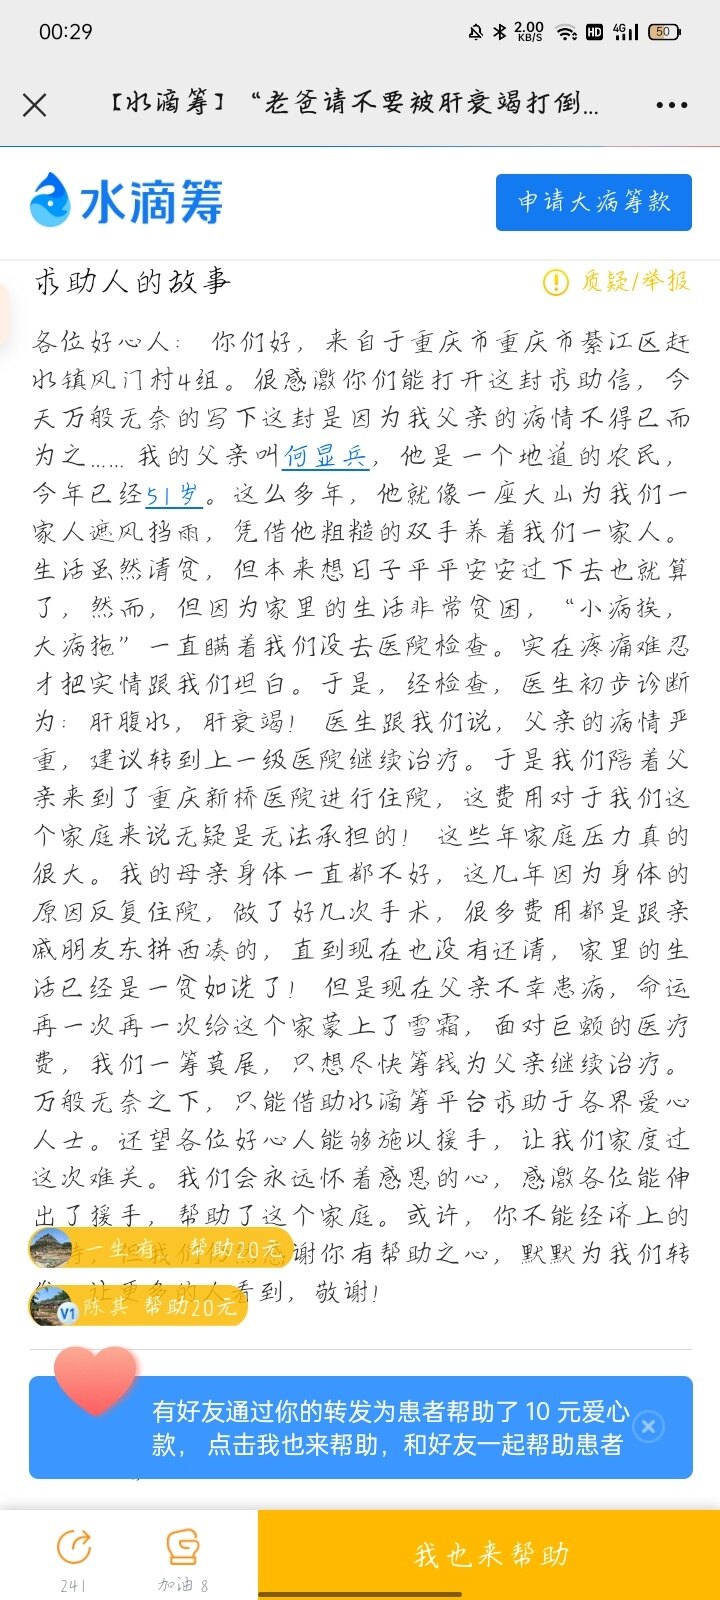 00:29
2.00 KB/S HD 4G 50
【水滴筹】“老爸请不要被肝衰竭打倒...
水滴筹
申请大病筹款
求助人的故事
质疑/举报
各位好心人： 你们好，来自于重庆市重庆市綦江区赶
水镇风门村4组。很感激你们能打开这封求助信，今
天万般无奈的写下这封是因为我父亲的病情不得已而
为之…… 我的父亲叫何显兵，他是一个地道的农民，
今年已经51岁。这么多年，他就像一座大山为我们一
家人遮风挡雨，凭借他粗糙的双手养着我们一家人。
生活虽然清贫，但本来想日子平平安安过下去也就算
了，然而，但因为家里的生活非常贫困，“小病挨，
大病拖”一直瞒着我们没去医院检查。实在疼痛难忍
才把实情跟我们坦白。于是，经检查，医生初步诊断
为：肝腹水，肝衰竭！ 医生跟我们说，父亲的病情严
重，建议转到上一级医院继续治疗。于是我们陪着父
亲来到了重庆新桥医院进行住院，这费用对于我们这
个家庭来说无疑是无法承担的！ 这些年家庭压力真的
很大。我的母亲身体一直都不好，这几年因为身体的
原因反复住院，做了好几次手术，很多费用都是跟亲
戚朋友东拼西凑的，直到现在也没有还清，家里的生
活已经是一贫如洗了！ 但是现在父亲不幸患病，命运
再一次再一次给这个家蒙上了雪霜，面对巨额的医疗
费，我们一筹莫展，只想尽快筹钱为父亲继续治疗。
万般无奈之下，只能借助水滴筹平台求助于各界爱心
人士。还望各位好心人能够施以援手，让我们家度过
这次难关。我们会永远怀着感恩的心，感激各位能伸
出了援手，帮助了这个家庭。或许，你不能经济上的
一生有 帮助20元
谢你有帮助之心，默默为我们转
V1 陈其 帮助20元
看到，敬谢！
有好友通过你的转发为患者帮助了 10 元爱心
款， 点击我也来帮助，和好友一起帮助患者
241
加油 8
我也来帮助